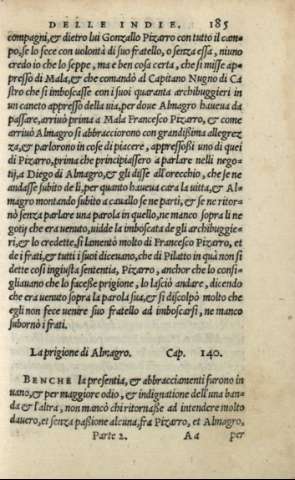 DELLE INDIE. 185
compagni, & dietro lui Gonzallo Pizarro con tutto il cam-
po, se lo fece con uolontà di suo fratello, o senza essa, niuno
credo io che lo seppe, ma è ben cosa certa, che si misse ap-
presso di Mala, & che comandò al Capitano Nugno di Ca
stro che si imboscasse con i suoi quaranta archibuggieri in
un caneto appresso della uia, per doue Almagro haueua da
passare, arriuò prima a Mala Francesco Pizarro, & come
arriuò Almagro si abbracciorono con grandissima allegrez
za, & parlorono in cose di piacere, appressosi uno di quei
di Pizarro, prima che principiassero a parlare nelli nego-
tij, a Diego di Almagro, & gli disse all'orecchio, che se ne
andasse subito de li, per quanto haueua cara la uitta, & Al-
magro montando subito a cauallo se ne parti, & se ne ritor-
nò senza parlare una parola in quello, ne manco sopra li ne
gotij che era uenuto, uidde la imboscata de gli archibuggie-
ri, & lo credette, si lamentò molto di Francesco Pizarro, et
de i frati, & tutti i suoi diceuano, che di Pilatto in quà non si
dette cosi ingiusta sententia, Pizarro, anchor che lo consi-
gliauano che lo facesse prigione, lo lasciò andare, dicendo
che era uenuto sopra la parola sua, & si discolpò molto che
egli non fece uenire suo fratello ad imboscarsi, ne manco
subornò i frati.
La prigione di Almagro. Cap. 140.
BENCHE la presentia, & abbracciamenti furono in
uano, & per maggiore odio, & indignatione dell'una ban-
da & l'altra, non mancò chi ritornasse ad intendere molto
dauero, et senza passione alcuna, fra Pizarro, et Almagro,
Parte 2. Aa per